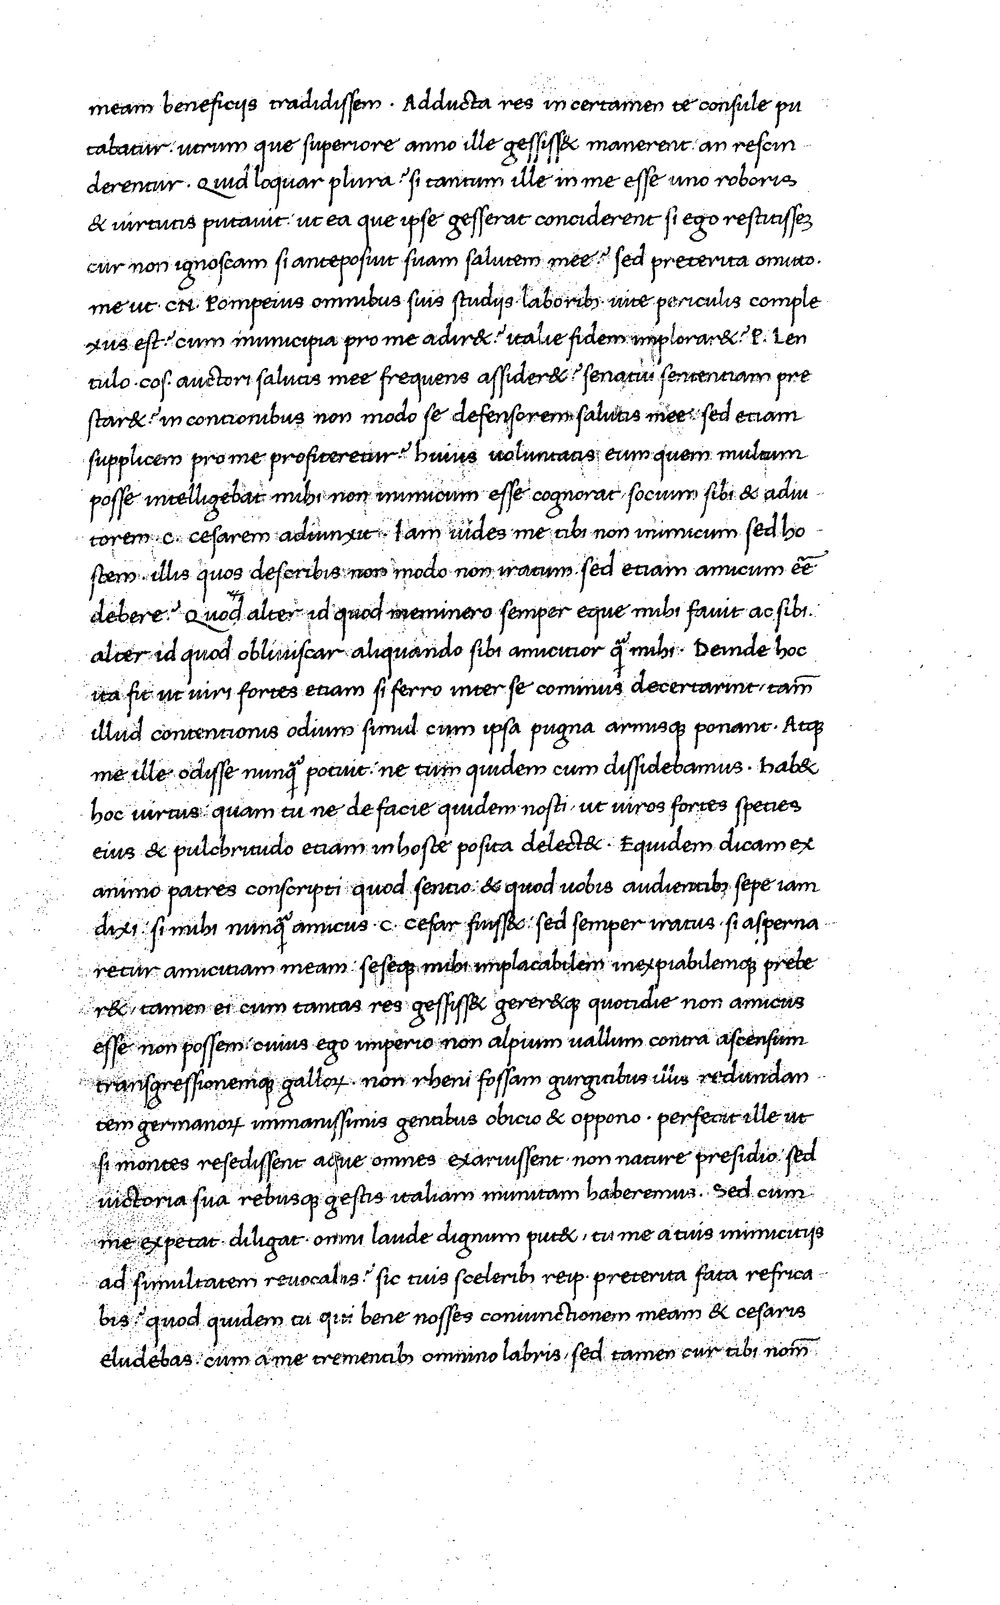 meam beneficijs tradidissem · Adducta res in certamen te consule pu
tabatur: utrum que superiore anno ille gessiss& manerent: an rescin
derentur · Quid loquar plura? si tantum ille in me esse uno roboris
& uirtutis putauit: ut ea que ipse gesserat conciderent si ego restitissez
cur non ignoscam si anteposiuit suam salutem mee? sed preterita omitto.
me ut · CN. Pompeius omnibus suis studijs laborib; uite periculis comple
xus est? cum municipia pro me adir&? italie fidem implorar&? P. Len
tulo · cos. auctori salutis mee frequens assider&? senatui sententiam pre
star&? in concionibus non modo se defensorem salutis mee: sed etiam
supplicem pro me profiteretur? huius uoluntatis eum quem multum
posse intelligebat mihi non inimicum esse cognorat socium sibi & adiu
torem · C. cesarem adiunxit · Iam uides me tibi non inimicum sed ho
stem · illis quos describis non modo non iratum: sed etiam amicum eē
debere? Quod alter id quod meminero semper eque mihi fauit ac sibi:
alter id quod obliuiscar aliquando sibi amicitior q̃ mihi · Deinde hoc
ita fit ut uiri fortes etiam si ferro inter se cominus decertarint, tam̄
illud contentionis odium simul cum ipsa pugna armisq; ponant · Atq;
me ille odisse nunq̃ potuit: ne tum quidem cum dissidebamus · hab&
hoc uirtus: quam tu ne de facie quidem nosti, ut uiros fortes species
eius & pulchritudo etiam in hoste posita delect& · Equidem dicam ex
animo patres conscripti quod sentio: & quod uobis audientib; sepe iam
dixi: si mihi nunq̃ amicus · C. cesar fuiss&: sed semper iratus · si asperna
retur amicitiam meam: seseq; mihi implacabilem inexpiabilemq; prebe
r&, tamen ei cum tantas res gessiss& gerer&q; quotidie non amicus
esse non possem: cuius ego imperio non alpium uallum contra ascensum
transgressionemq; galloꝝ · non rheni fossam gurgitibus illis redundan
tem germanoꝝ immanissimis gentibus obicio & oppono · perfecit ille ut
si montes resedissent atque omnes exaruissent · non nature presidio: sed
uictoria sua rebusq; gestis italiam munitam haberemus. Sed cum
me expetat diligat · omni laude dignum put&, tu me a tuis inimicitijs
ad simultatem reuocabis? sic tuis scelerib; reip · preterita fata refrica
bis? quod quidem tu qui bene nosses coniunctionem meam & cesaris
eludebas: cum a me trementib; omnino labris, sed tamen cur tibi nom̄